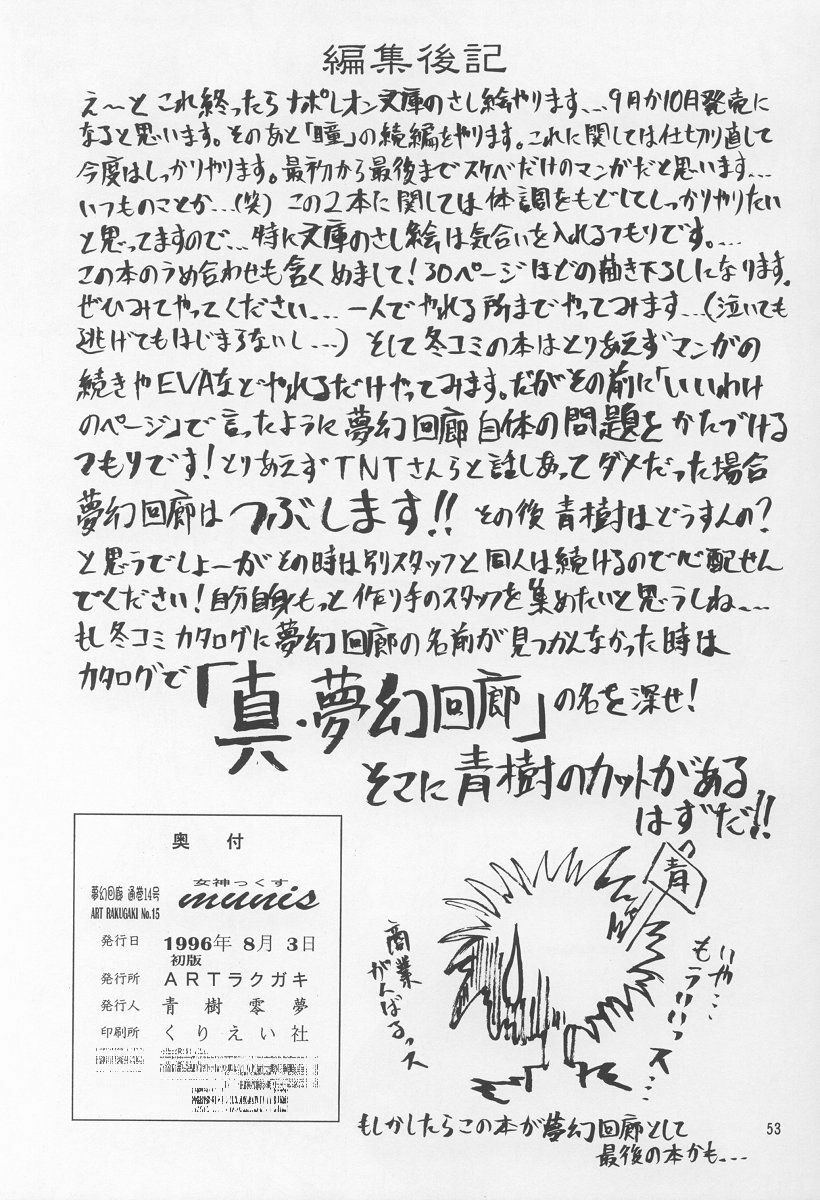 編集後記
え〜と これ終ったら ナポレオン文庫のさし絵やります...9月か10月発売に
なると思います。そのあと「瞳」の続編をやります。これに関しては仕切り直して
今度はしっかりやります。最初から最後までスケベだけのマンガだと思います...
いつものことか...(笑) この2本に関しては体調をもどしてしっかりやりたい
と思ってますので...特に文庫のさし絵は気合いを入れるつもりです。...
この本のうめ合わせも含くめまして!30ページほどの描き下ろしになります。
ぜひみてやってください... 一人でやれる所までやってみます...(泣いても
逃げてもはじまらないし...) そして冬コミの本はとりあえずマンガの
続きやEVAなどやれるだけやってみます。だがその前に「いいわけ
のページ」で言ったように夢幻回廊自体の問題をかたづける
つもりです!とりあえずTNTさんらと話しあってダメだった場合
夢幻回廊は つぶします!! その後青樹はどうすんの?
と思うでしょーがその時は別スタッフと同人は続けるので心配せん
でください!自分自身もっと作り手のスタッフを集めたいと思うしね...
もし冬コミカタログに夢幻回廊の名前が見つかんなかった時は
カタログで「真・夢幻回廊」の名を深せ!
そこに青樹のカットがある
はずだ!!
奥付
女神っくす
夢幻回廊 通巻14号
munis
ART RAKUGAKI No.15
発行日 1996年 8月 3日
初版
発行所 ARTラクガキ
発行人 青樹零夢
印刷所 くりえい社
青
商業
がんばるっス
いや...
もういいっス...
もしかしたらこの本が夢幻回廊として
最後の本かも...
53